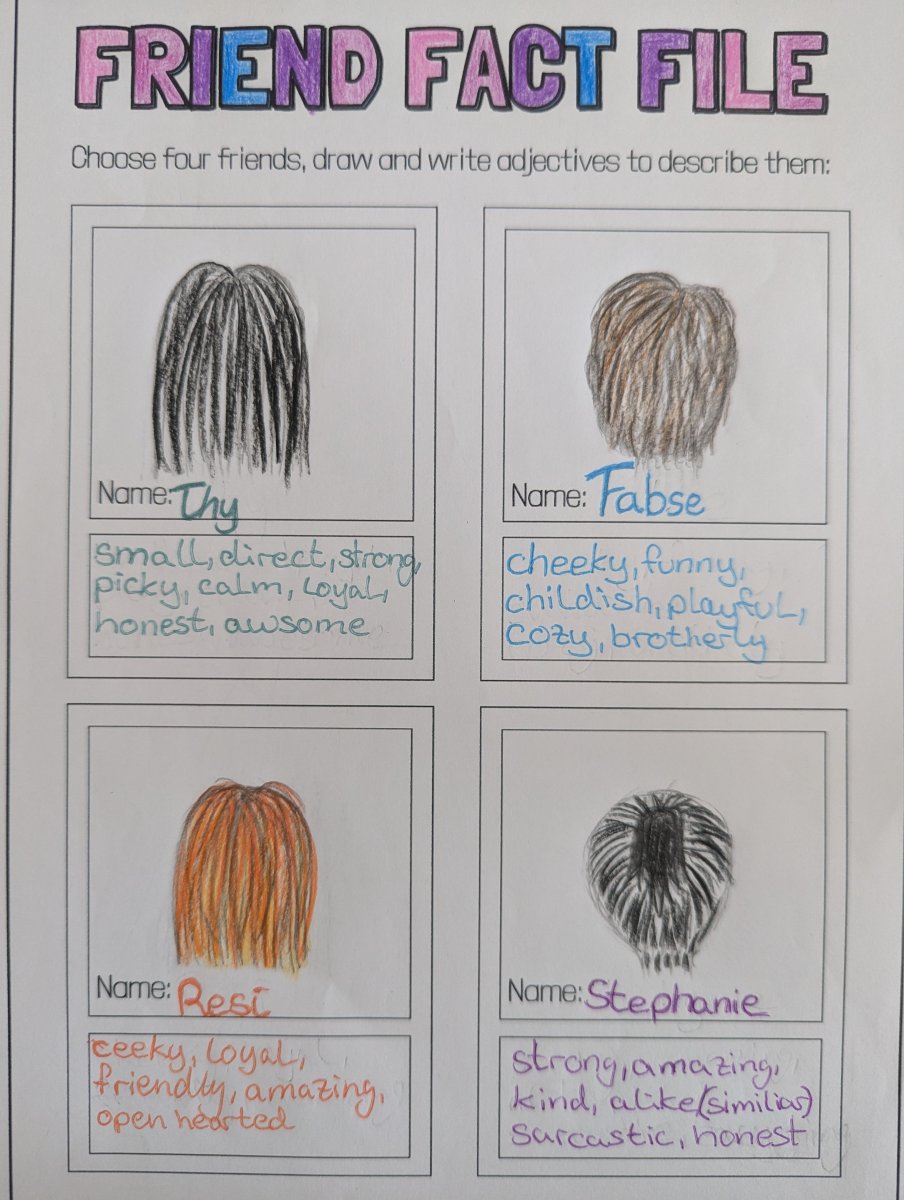 FRIEND FACT FILE
Choose four friends, draw and write adjectives to describe them:
Name: Thy
small, direct, strong,
picky, calm, loyal,
honest, awsome
Name: Fabse
cheeky, funny,
childish, playful,
cozy, brotherly
Name: Resi
ceeky, loyal,
friendly, amazing,
open hearted
Name: Stephanie
strong, amazing,
kind, alike (similiar)
sarcastic, honest